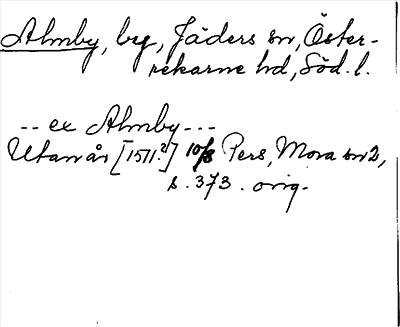 Almby, by, Jäders sn, Öster-
rekarne hd, Söd. l.
-- ex Almby ---
Utan år [1571?] 10/8 Pers, Mora sn 2,
s. 373. orig.